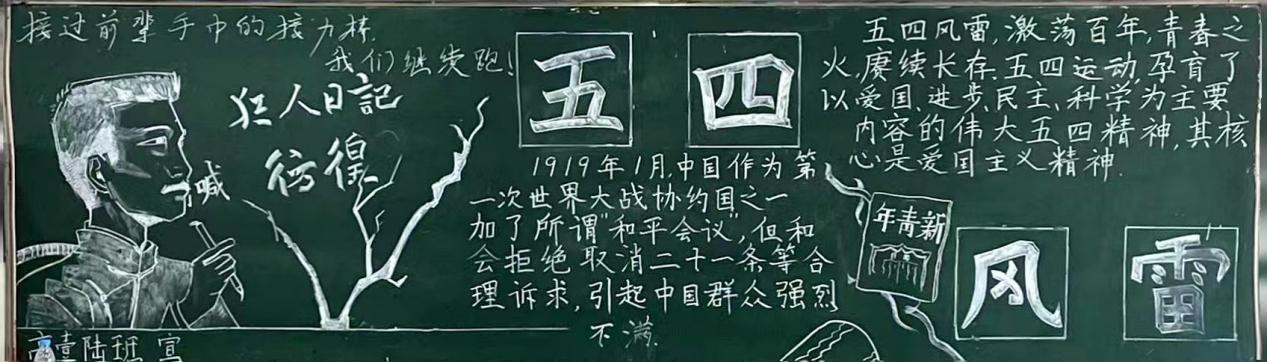 接过前辈手中的接力棒,
我们继续跑!
狂人日記
彷徨
呐喊
五四
风雷
1919年1月,中国作为第
一次世界大战协约国之一
加了所谓"和平会议",但和
会拒绝取消二十一条等合
理诉求,引起中国群众强烈
不满.
五四风雷,激荡百年,青春之
火,赓续长存.五四运动,孕育了
以爱国、进步、民主、科学为主要
内容的伟大五四精神,其核
心是爱国主义精神.
新青年
高壹陆班 宣